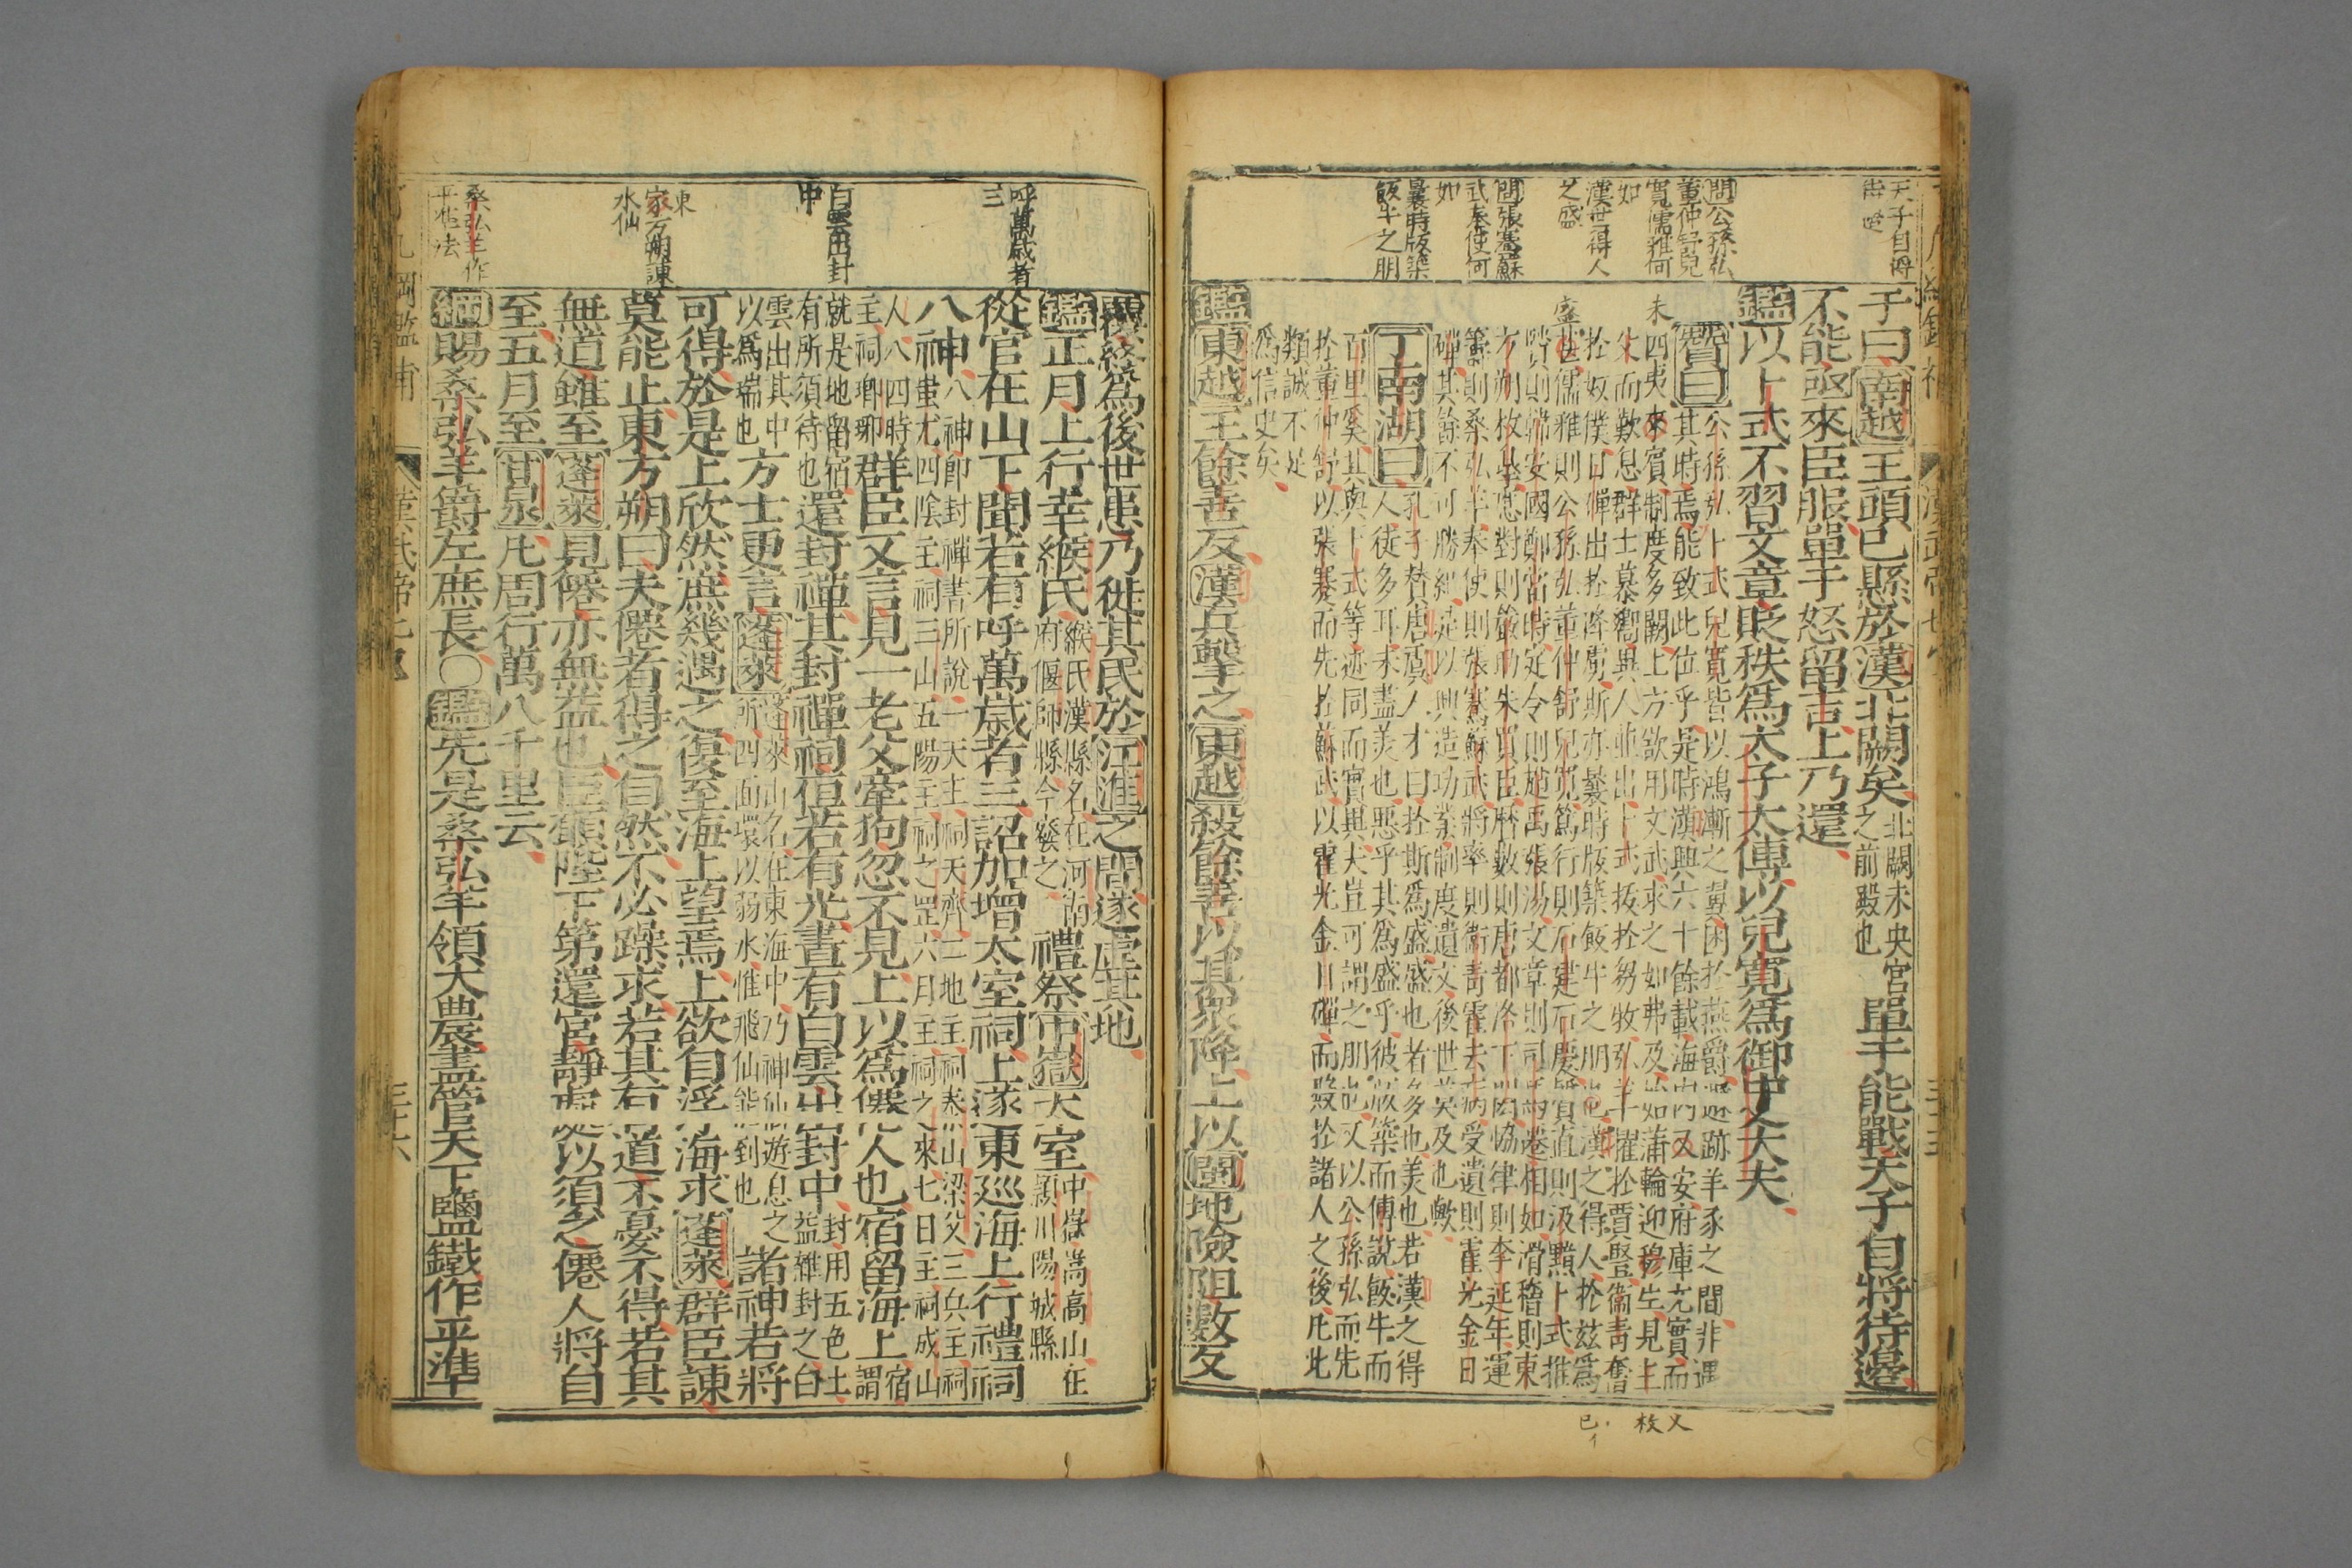 天子自將待邊
子曰南越王頭已懸於漢北闕矣北闕未央宮之前殿也單于能戰天子自將待邊
不能亟來臣服單于怒留吉上乃還
鑑以卜式不習文章貶秩爲太子太傅以兒寬爲御史大夫
問公孫弘董仲舒兒寬儒雅何如
漢世得人之盛
問張騫蘇武奉使何如
曩時版築飯牛之朋
贊曰公孫弘卜式兒寬皆以鴻漸之翼困於燕爵遠跡羊豕之間非遇
其時焉能致此位乎是時漢興六十餘載海内乂安府庫充實而
四夷未賓制度多闕上方欲用文武求之如弗及始以蒲輪迎枚生見主
父而歎息群士慕嚮異人並出卜式拔於芻牧弘羊擢於賈豎衛青奮
於奴僕日磾出於降虜斯亦曩時版築飯牛之朋也漢之得人於玆爲
盛儒雅則公孫弘董仲舒兒寬篤行則石建石慶質直則汲黯卜式推
賢則韓安國鄭當時定令則趙禹張湯文章則司馬遷相如滑稽則東
方朔枚臯應對則嚴助朱買臣曆數則唐都洛下閎協律則李延年運
籌則桑弘羊奉使則張騫蘇武將率則衛青霍去病受遺則霍光金日
磾其餘不可勝紀是以興造功業制度遺文後世莫及也
丁南湖曰孔子賛唐虞人才曰於斯爲盛盛也者多也美也若漢之得
人徒多耳未盡美也惡乎其爲盛乎彼版築而傅說飯牛而
百里奚其與卜式等迹同而實異夫豈可謂之朋也又以公孫弘而先
於董仲舒以張騫而先於蘇武以霍光金日磾而殿於諸人之後凡此
類誠不足
爲信史矣
鑑東越王餘善反漢兵擊之東越殺餘善以其衆降上以閩地險阻數反
覆終爲後世患乃徙其民於江淮之間遂虛其地
呼萬歲者三
鑑正月上行幸緱氏緱氏漢縣名在河南府偃師縣今發之禮祭中嶽太室中嶽嵩高山在潁川陽城縣
從官在山下聞若有呼萬歲者三詔加增太室祠上遂東巡海上行禮祠
八神八神即封禪書所說一天主祠天齊二地主祠泰山梁父三兵主祠蚩尤四陰主祠三山五陽主祠之罘六月主祠之來七日主祠成山
人八四時主祠瑯琊群臣又言見一老父牽狗忽不見上以爲僊人也宿留海上宿謂
白雲出封中
就是地留宿有所須待也還封禪其封禪祠但若有光晝有白雲出封中封用五色土益雜封之白
雲出其中以爲瑞也方士更言蓬萊蓬萊山名在東海中乃神仙遊息之所四面環以弱水惟飛仙能到也諸神若將
可得於是上欣然庶幾遇之復至海上望焉上欲自浮海求蓬萊群臣諫
東方朔諫家水仙
莫能止東方朔曰夫僊者得之自然不必躁求若其有道不憂不得若其
無道雖至蓬萊見僊亦無益也臣願陛下第還宮靜處以須之僊人將自
至五月至甘泉凡周行萬八千里云
桑弘羊作平準法
綱賜桑弘羊爵左庶長〇鑑先是桑弘羊領大農盡管天下鹽鐵作平準